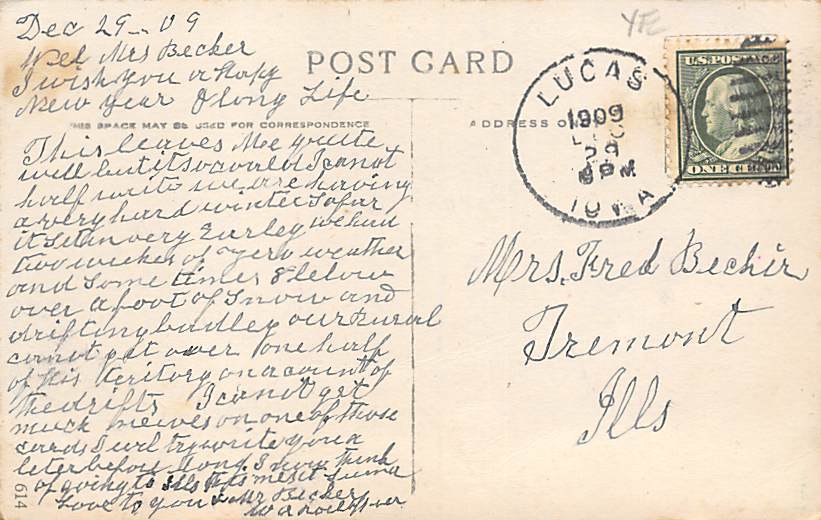 Dec 29 - 09
Wel Mrs Becker
I wish you a Hapy
New year & long Life
POST CARD
THIS SPACE MAY BE USED FOR CORRESPONDENCE
This leaves Me quite
well but it so cold I canot
half write we are having
a very hard winter so far
it set in very Earley we had
two weekes of zero weather
and some times 8 below
over a foot of snow and
drifting badley our Rural
canot get over one half
of his teritory on acount of
the drifts I canot get
much newes on one of those
cards I wil try write you a
leter before long. I now think
of going to Ills this
Love to you & Mr Becker
614
ADDRESS
YFE
LUCAS
1909
DEC
29
6 PM
IOWA
U.S. POSTAGE
ONE CENT
Mrs. Fred Becker
Tremont
Ills